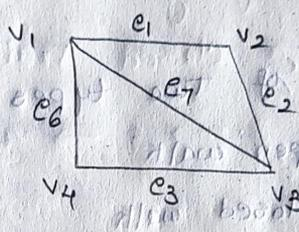 e1
V1 V2
e6 e7 e2
V4 e3 V3